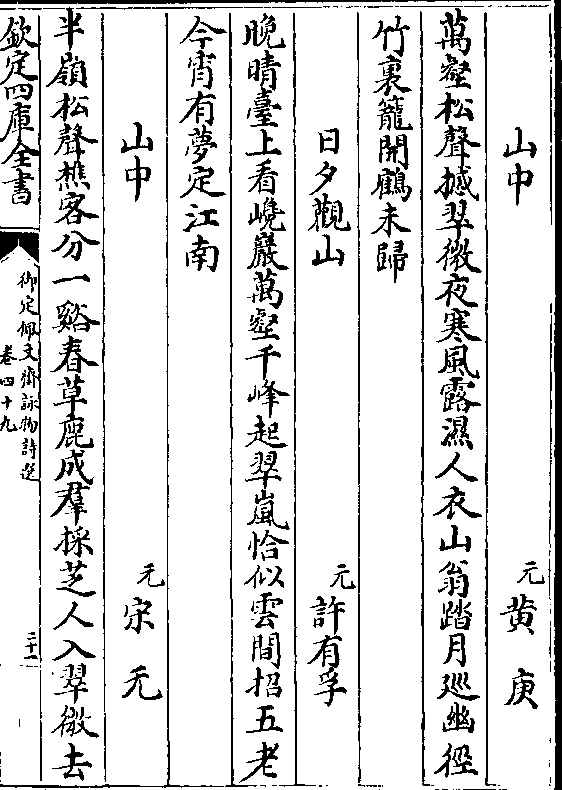 山中　元　黄　庚
萬壑松聲撼翠微夜寒風露濕人衣山翁踏月廵幽徑
竹裏籠開鶴未歸
日夕觀山　元　許有孚
晚晴臺上看巉巖萬壑千峰起翠嵐恰似雲間招五老
今宵有夢定江南
山中　元　宋　无
半嶺松聲樵客分一谿春草鹿成羣採芝人入翠微去
欽定四庫全書
御定佩文齋詠物詩選
卷四十九
二十一